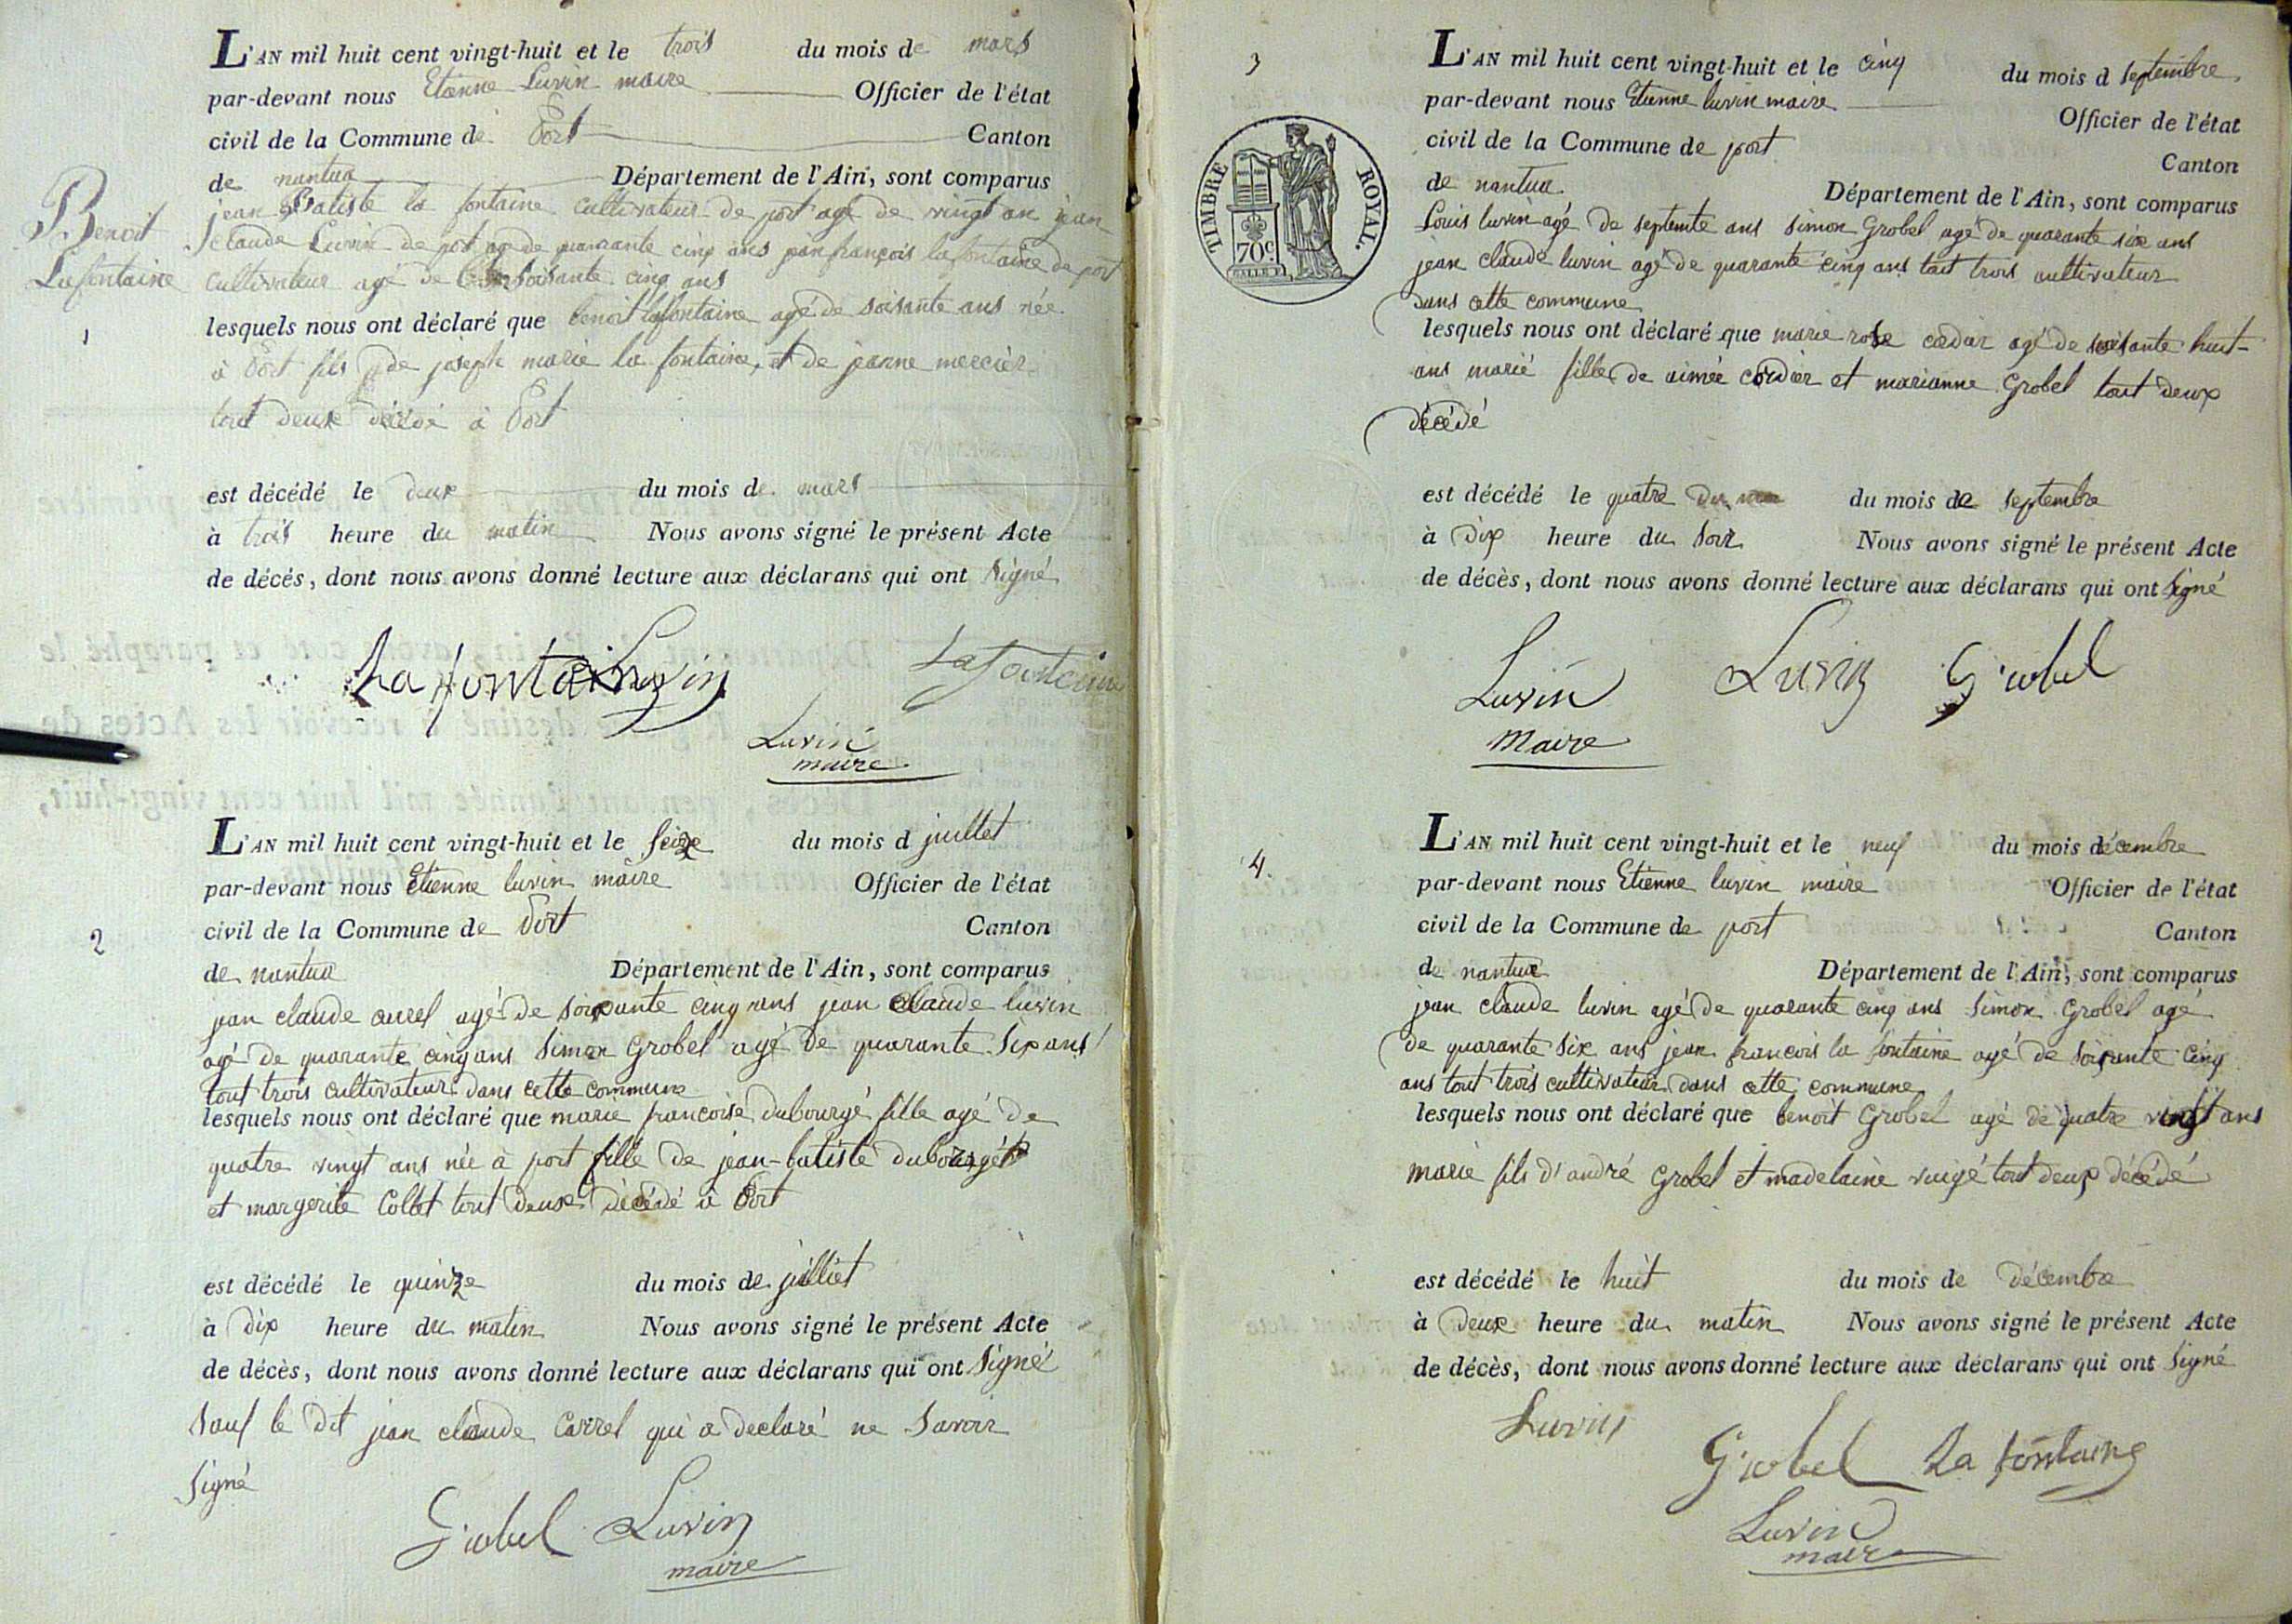 L'AN mil huit cent vingt-huit et le trois du mois de mars
par-devant nous Etienne Luvin maire Officier de l'état
civil de la Commune de Port Canton
de nantua Département de l'Ain, sont comparus
jean Batiste la fontaine cultivateur de port agé de vingt an jean
claude Luvin de port agé de quarante cinq ans jean françois la fontaine de port
cultivateur agé de soisante cinq ans
Benoit
Lafontaine
1
lesquels nous ont déclaré que benoit lafontaine agé de soisante ans née
à Port fils de joseph marie la fontaine, et de jeanne mercier
tout deux décédé à Port
est décédé le deux du mois de mars
à trois heure du matin Nous avons signé le présent Acte
de décés, dont nous avons donné lecture aux déclarans qui ont signé
La fontaine Luvin Lafontaine
Luvin
maire
L'AN mil huit cent vingt-huit et le seize du mois d juillet
par-devant nous Etienne luvin maire Officier de l'état
civil de la Commune de Port Canton
2
de nantua Département de l'Ain, sont comparus
jean claude carrel agé de soixante cinq ans jean claude luvin
agé de quarante cinq ans Simon Grobel agé de quarante six ans
tout trois cultivateur dans cette commune
lesquels nous ont déclaré que marie francoise dubourgé fille agé de
quatre vingt ans née à port fille de jean-batiste dubourgé
et margerite Collet tout deux décédé à Port
est décédé le quinze du mois de julliet
à dix heure du matin Nous avons signé le présent Acte
de décès, dont nous avons donné lecture aux déclarans qui ont signé
sauf le dit jean claude Carrel qui a declaré ne savoir
signé
Grobel Luvin
maire
3
L'AN mil huit cent vingt-huit et le cinq du mois d septembre
par-devant nous Etienne luvin maire Officier de l'état
civil de la Commune de port Canton
TIMBRE ROYAL.
70c.
de nantua Département de l'Ain, sont comparus
Louis luvin agé de septente ans simon Grobel agé de quarante six ans
jean claude luvin agé de quarante cinq ans tout trois cultivateur
dans cette commune
lesquels nous ont déclaré que marie rose cordier agé de soisante huit
ans marié fille de aimée cordier et marianne Grobel tout deux
décédé
est décédé le quatre du mois de septembre
à dix heure du soir Nous avons signé le présent Acte
de décès, dont nous avons donné lecture aux déclarans qui ont signé
Luvin Luvin Grobel
Maire
4.
L'AN mil huit cent vingt-huit et le neuf du mois décembre
par-devant nous Etienne luvin maire Officier de l'état
civil de la Commune de port Canton
de nantua Département de l'Ain, sont comparus
jean claude luvin agé de quarante cinq ans simon Grobel agé
de quarante six ans jean francois la fontaine agé de soixante cinq
ans tout trois cultivateur dans cette commune
lesquels nous ont déclaré que benoit Grobel agé de quatre vingt ans
marié fils d'andré Grobel et madelaine tout deux décédé
est décédé le huit du mois de décembre
à deux heure du matin Nous avons signé le présent Acte
de décès, dont nous avons donné lecture aux déclarans qui ont signé
Luvin
Grobel La fontaine
Luvin
maire